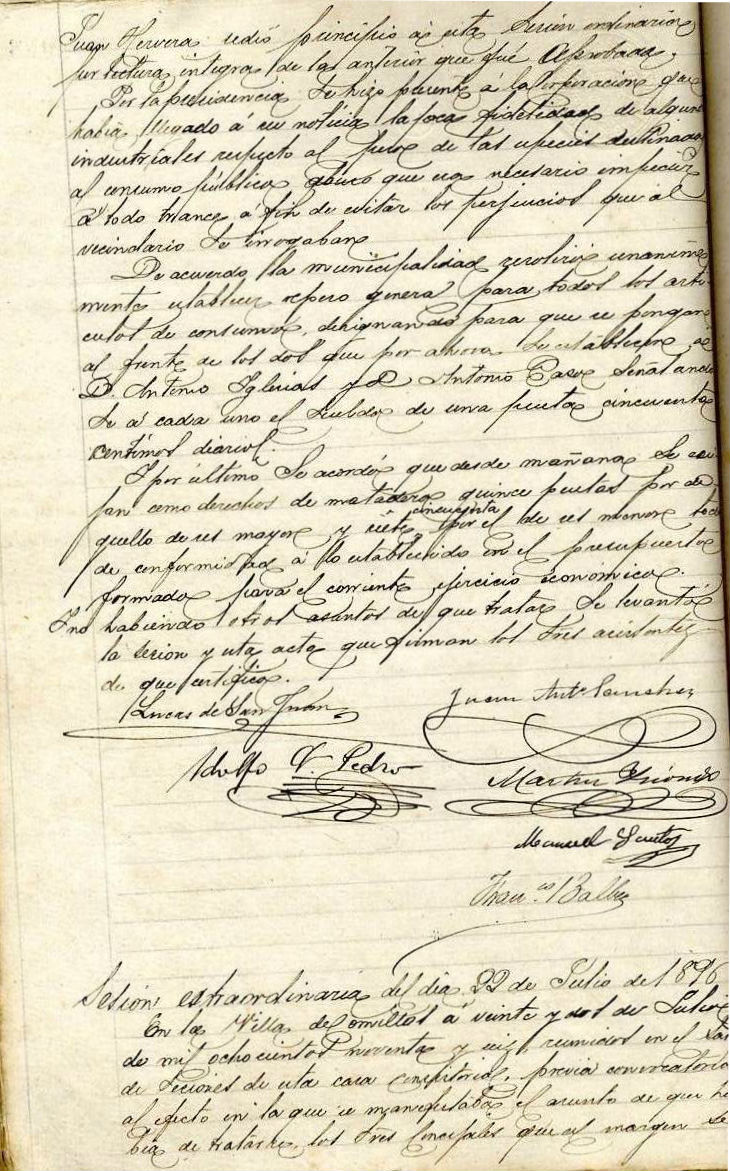 Juan Hervera se dió principio á esta Sesión ordinaria
por lectura integra de la anterior que fué aprobada.
Por la presidencia se hizo presente á la Corporación que
había llegado á su noticia la poca fidelidad de algunos
industriales respecto al peso de las especies destinadas
al consumo público que era necesario impedir
á todo trance á fin de evitar los perjuicios que al
vecindario se irrogaban
De acuerdo la municipalidad resolvió unanime
mente establecer repeso general para todos los artí
culos de consumos, designando para que se pongan
al frente de los dos que por ahora se establecen á
D. Antonio Iglesias y D Antonio señalando
se á cada uno el sueldo de una peseta cincuenta
centimos diarios.
Y por último se acordó que desde mañana se exi
jan como derechos de matadero quince pesetas por de
quello de res mayor y siete cincuenta por el de res menor todo
de conformidad á lo establecido en el presupuesto
formado para el corriente ejercicio económico.
Y no habiendo otros asuntos de que tratar se levantó
la sesion y esta acta que firman los Sres asistentes
de que certifico.
Lucas de San Juan
Juan Ant.º Sanchez
Adolfo V. Pedro
Martin
Manuel Santos
Fran.co Balbe
Sesión extraordinaria del dia 22 de Julio de 1896
En la Villa de á veinte y dos de Julio
de mil ochocientos noventa y seis, reunidos en el Salón
de Sesiones de esta casa consistorial, previa convocatoria
al efecto en la que se manifestaba el asunto de que ha
bía de tratarse, los Sres Concejales que al margen se